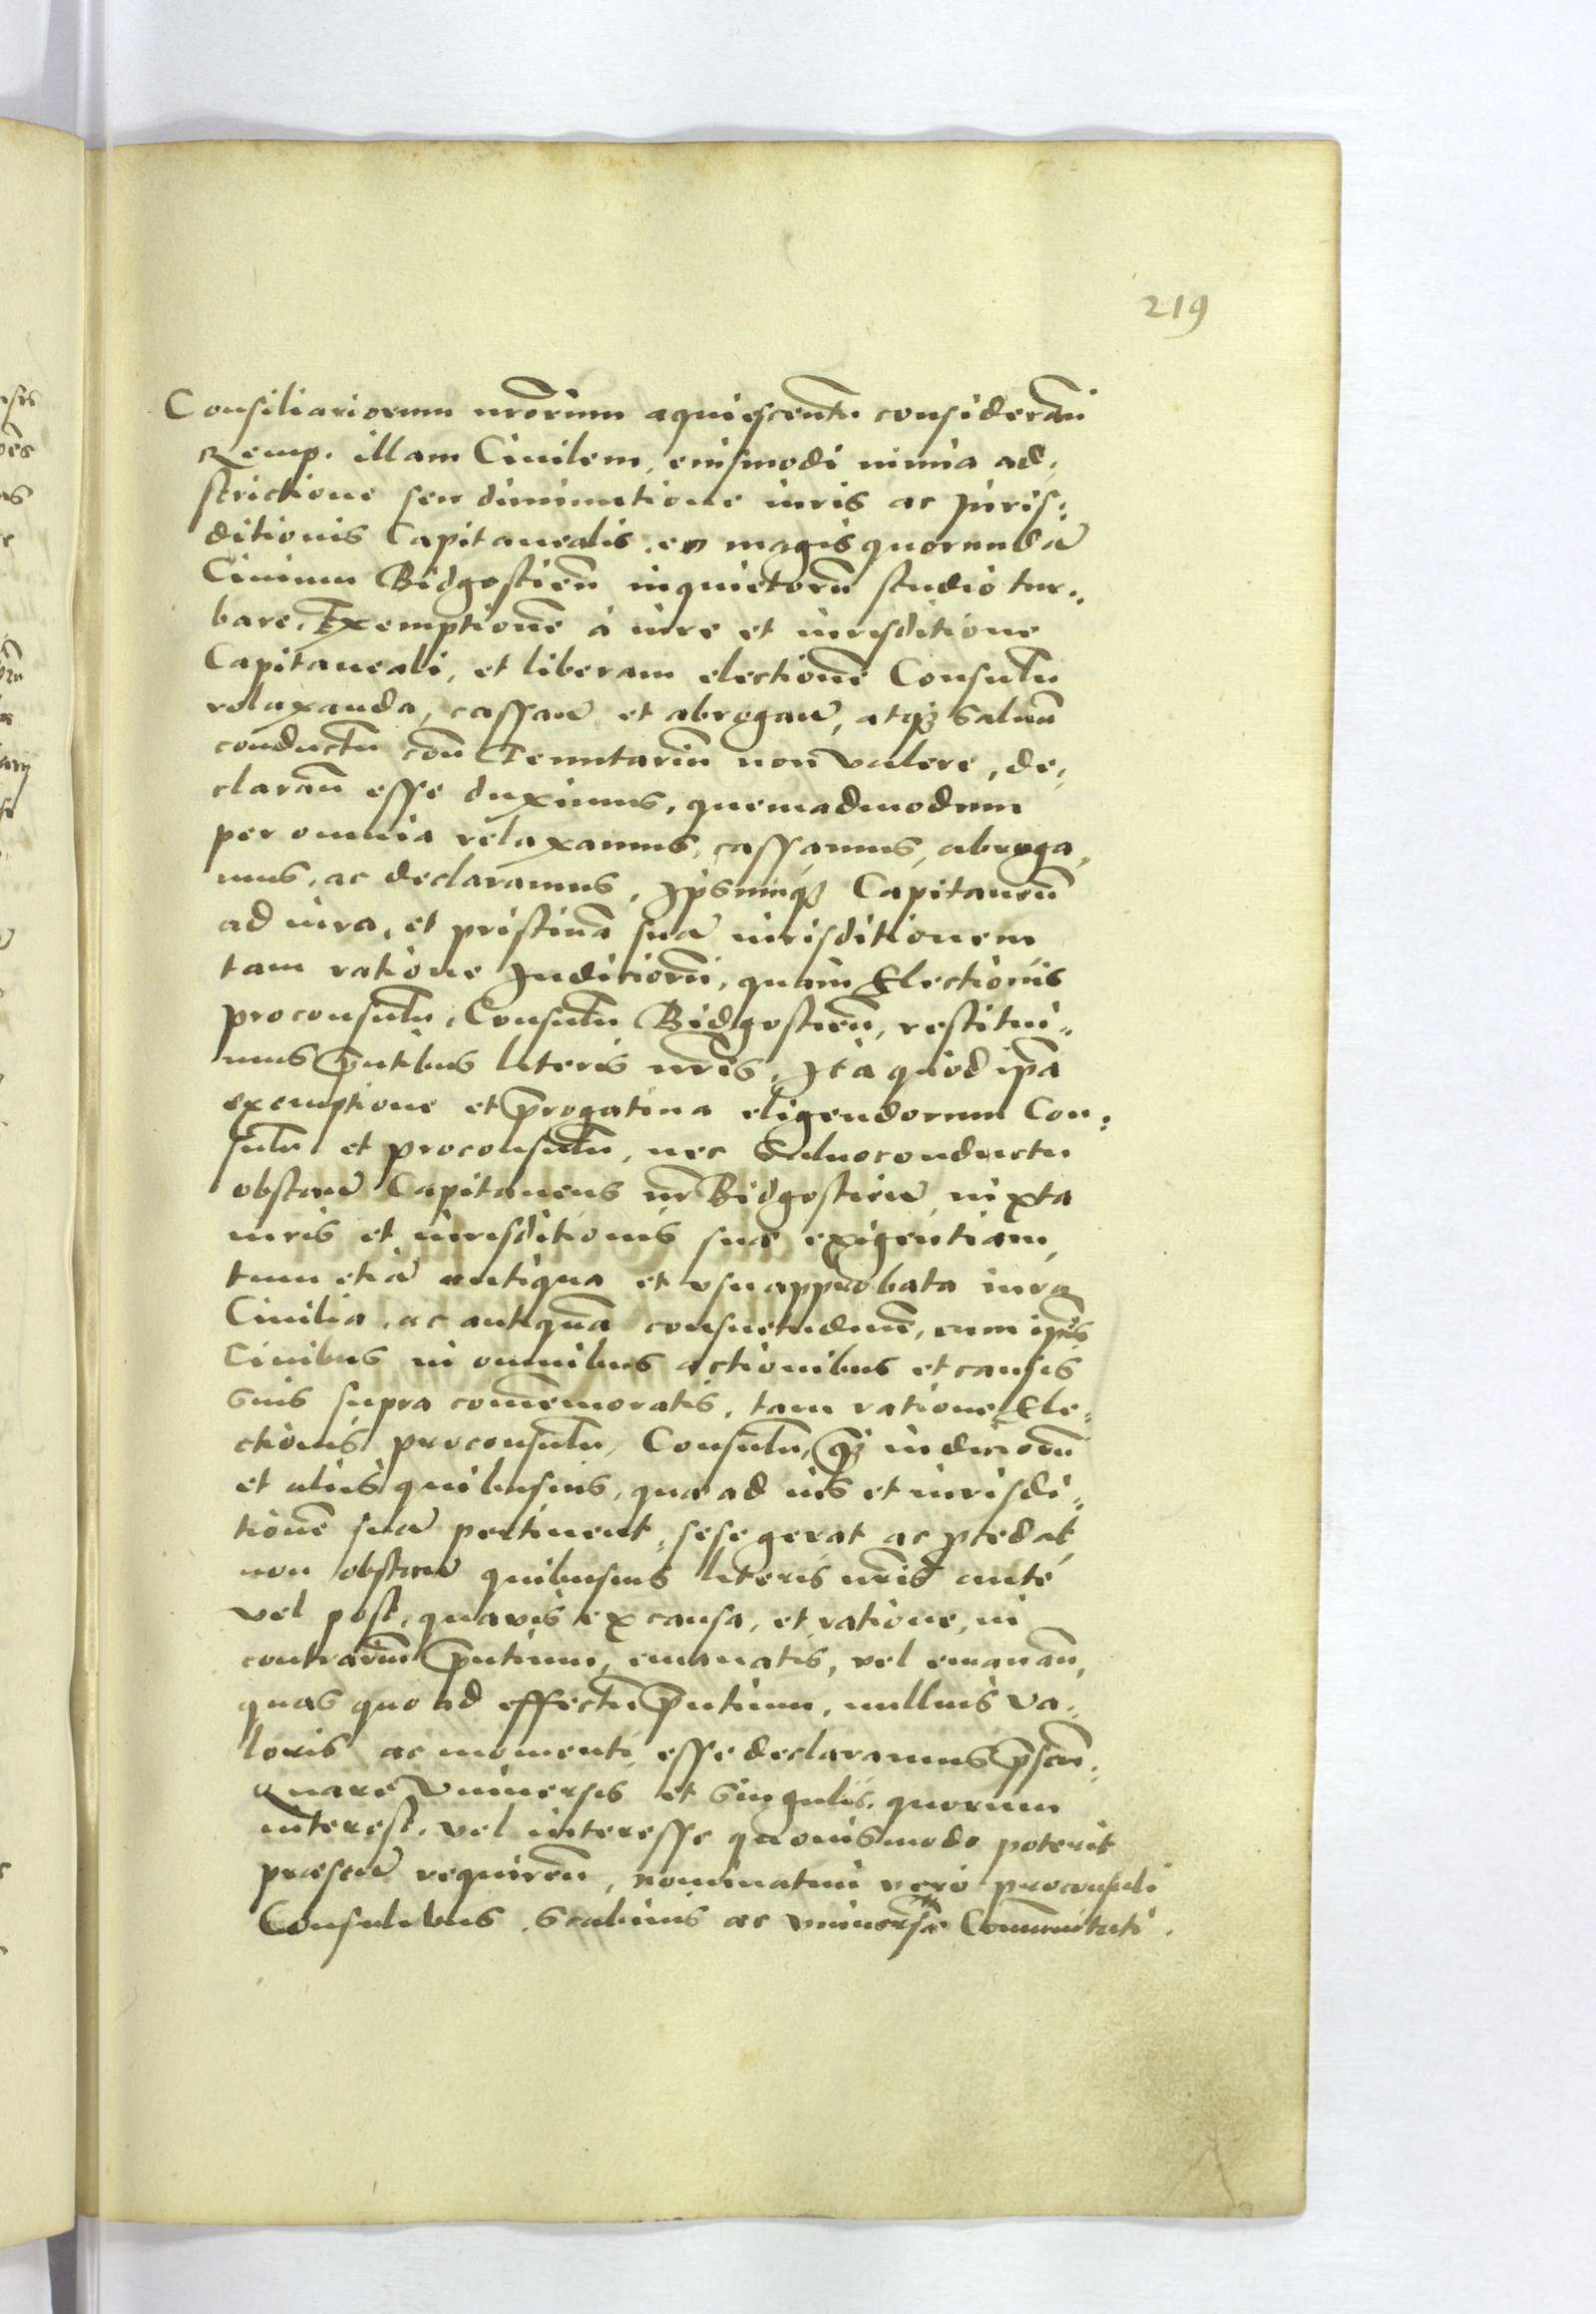 219
Consiliariorum nrōrum aquiescentū considerañ
Remp. illam Ciuilem, eiusmodi nimia ad,
strictione seu diminutione iuris ac Juris:
ditionis Capitanealis, eo magis quorundā
Ciuium Bidgostieñ inquietorū studio tur:
bare. Exemptionē à iure et iurisditione
Capitaneali, et liberam electionē Consulū
relaxanda, cassañ et abrogañ, atqȝ saluū
conductū coñ Tenutariū non valere, de,
clarañ esse duximus, quemadmodum
per omnia relaxamus, cassamus, abroga,
mus, ac declaramus, Ipsumqȝ Capitaneū
ad iura, et pristinā suā iurisditionem
tam ratione Judiciorū, quam Electionis
proconsulū, Consulū Bidgostieñ, restitui:
mus p̄ntibus literis nr̄is, Ita quod ip̄a
exemptione et p̄rogatiua eligendorum Con:
sulū et proconsulū, nec saluoconductu
obstañ Capitaneus nr̄ Bidgostieñ, iuxta
iuris et iurisditionis suæ exigentiam,
tum etiā antiqua et vsu approbata iura
Ciuilia, ac antiquā consuetudinē, cum ip̄is
Ciuibus in omnibus actionibus et causis
suis supra comēmoratis, tam ratione Ele,
ctionis proconsulū, Consulū, qȝ iudiciorū
et alijs quibusuis, quæ ad ius et iurisdi:
tionē suā pertinent, sese gerat ac p̱cedat,
non obstañ quibusuis literis nr̄is ante
vel post, quauis ex causa, et ratione, in
contrariū p̄ntium, emanatis, vel emanañ,
quas quo ad effectū p̄ntium, nullius va:
loris ac momenti esse declaramus p̄sen:
Quare Vniuersis et singulis, quorum
interest, vel interesse quouismodo poterit
præseñ requireñ, nominatim vero proconsuli
Consulibus, Scabinis ac vniuersæ Communitati.